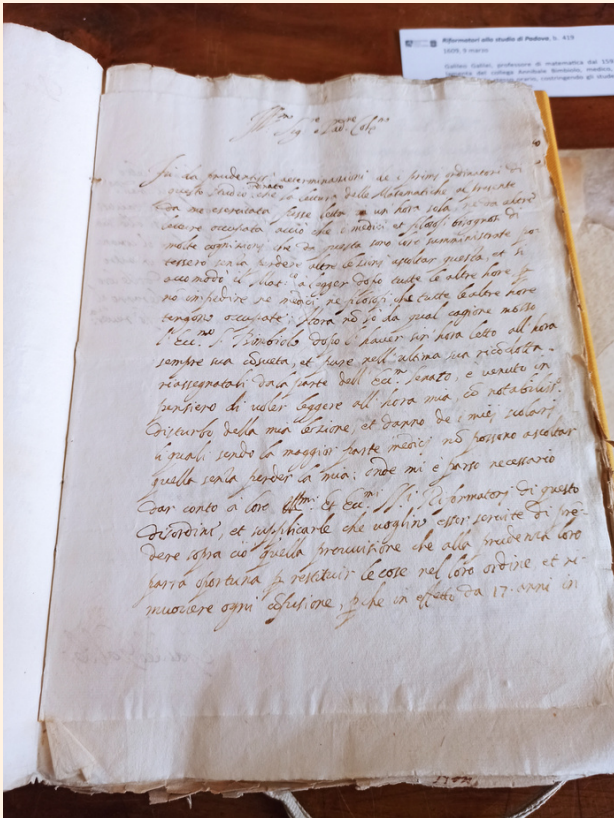 Riformatori allo studio di Padova, b. 419
1609, 9 marzo
Galileo Galilei, professore di matematica dal 159
lamenta del collega Annibale Bimbiolo, medico,
orario, costringendo gli stude
Ill.mo Sig.re e Pad.ne Col.mo
Fù da prudentissi determinazioni de i primi ordinatori di
questo studio ordinato che la lettura delle Matematiche al presente
da me esercitata fosse letta a un' hora sola, nè da altre
letture occupata acciò che i medici et filosofi bisognosi di
molte cognizioni che da questa sono loro sumministrate po-
tessero senza perdere altre lezzioni ascoltar questa, et si
accomodò il Mat.co a legger dopo tutte le altre hore, p
no impedire nè medici nè filosofi che tutte le altre hore
tengono occupate. Hora nõ so da qual cagione mosso
l'Ecc.mo S. Bimbiolo dopo l'haver sin' hora letto all' hora
sempre sua consueta, et pure nell' ultima sua ricondotta
riassegnatali da la parte dell' Ecc.mo Senato, è venuto in
pensiero di voler leggere all' hora mia, cõ notabiliss.o
disturbo della mia lezzione, et danno de i miei scolari
i quali sendo la maggior parte medici nõ possono ascoltar
quella senza perder la mia: onde mi è parso necessario
dar conto à loro Ill.mi et Ecc.mi SS.ri Riformatori di questo
disordine, et supplicarle che voglino esser servite di pre-
dere sopra ciò quella provvisione che alla prudenza loro
parrà oportuna p restituir le cose nel loro ordine et ri-
muovere ogni cõfusione, p che in effetto da 17 anni in